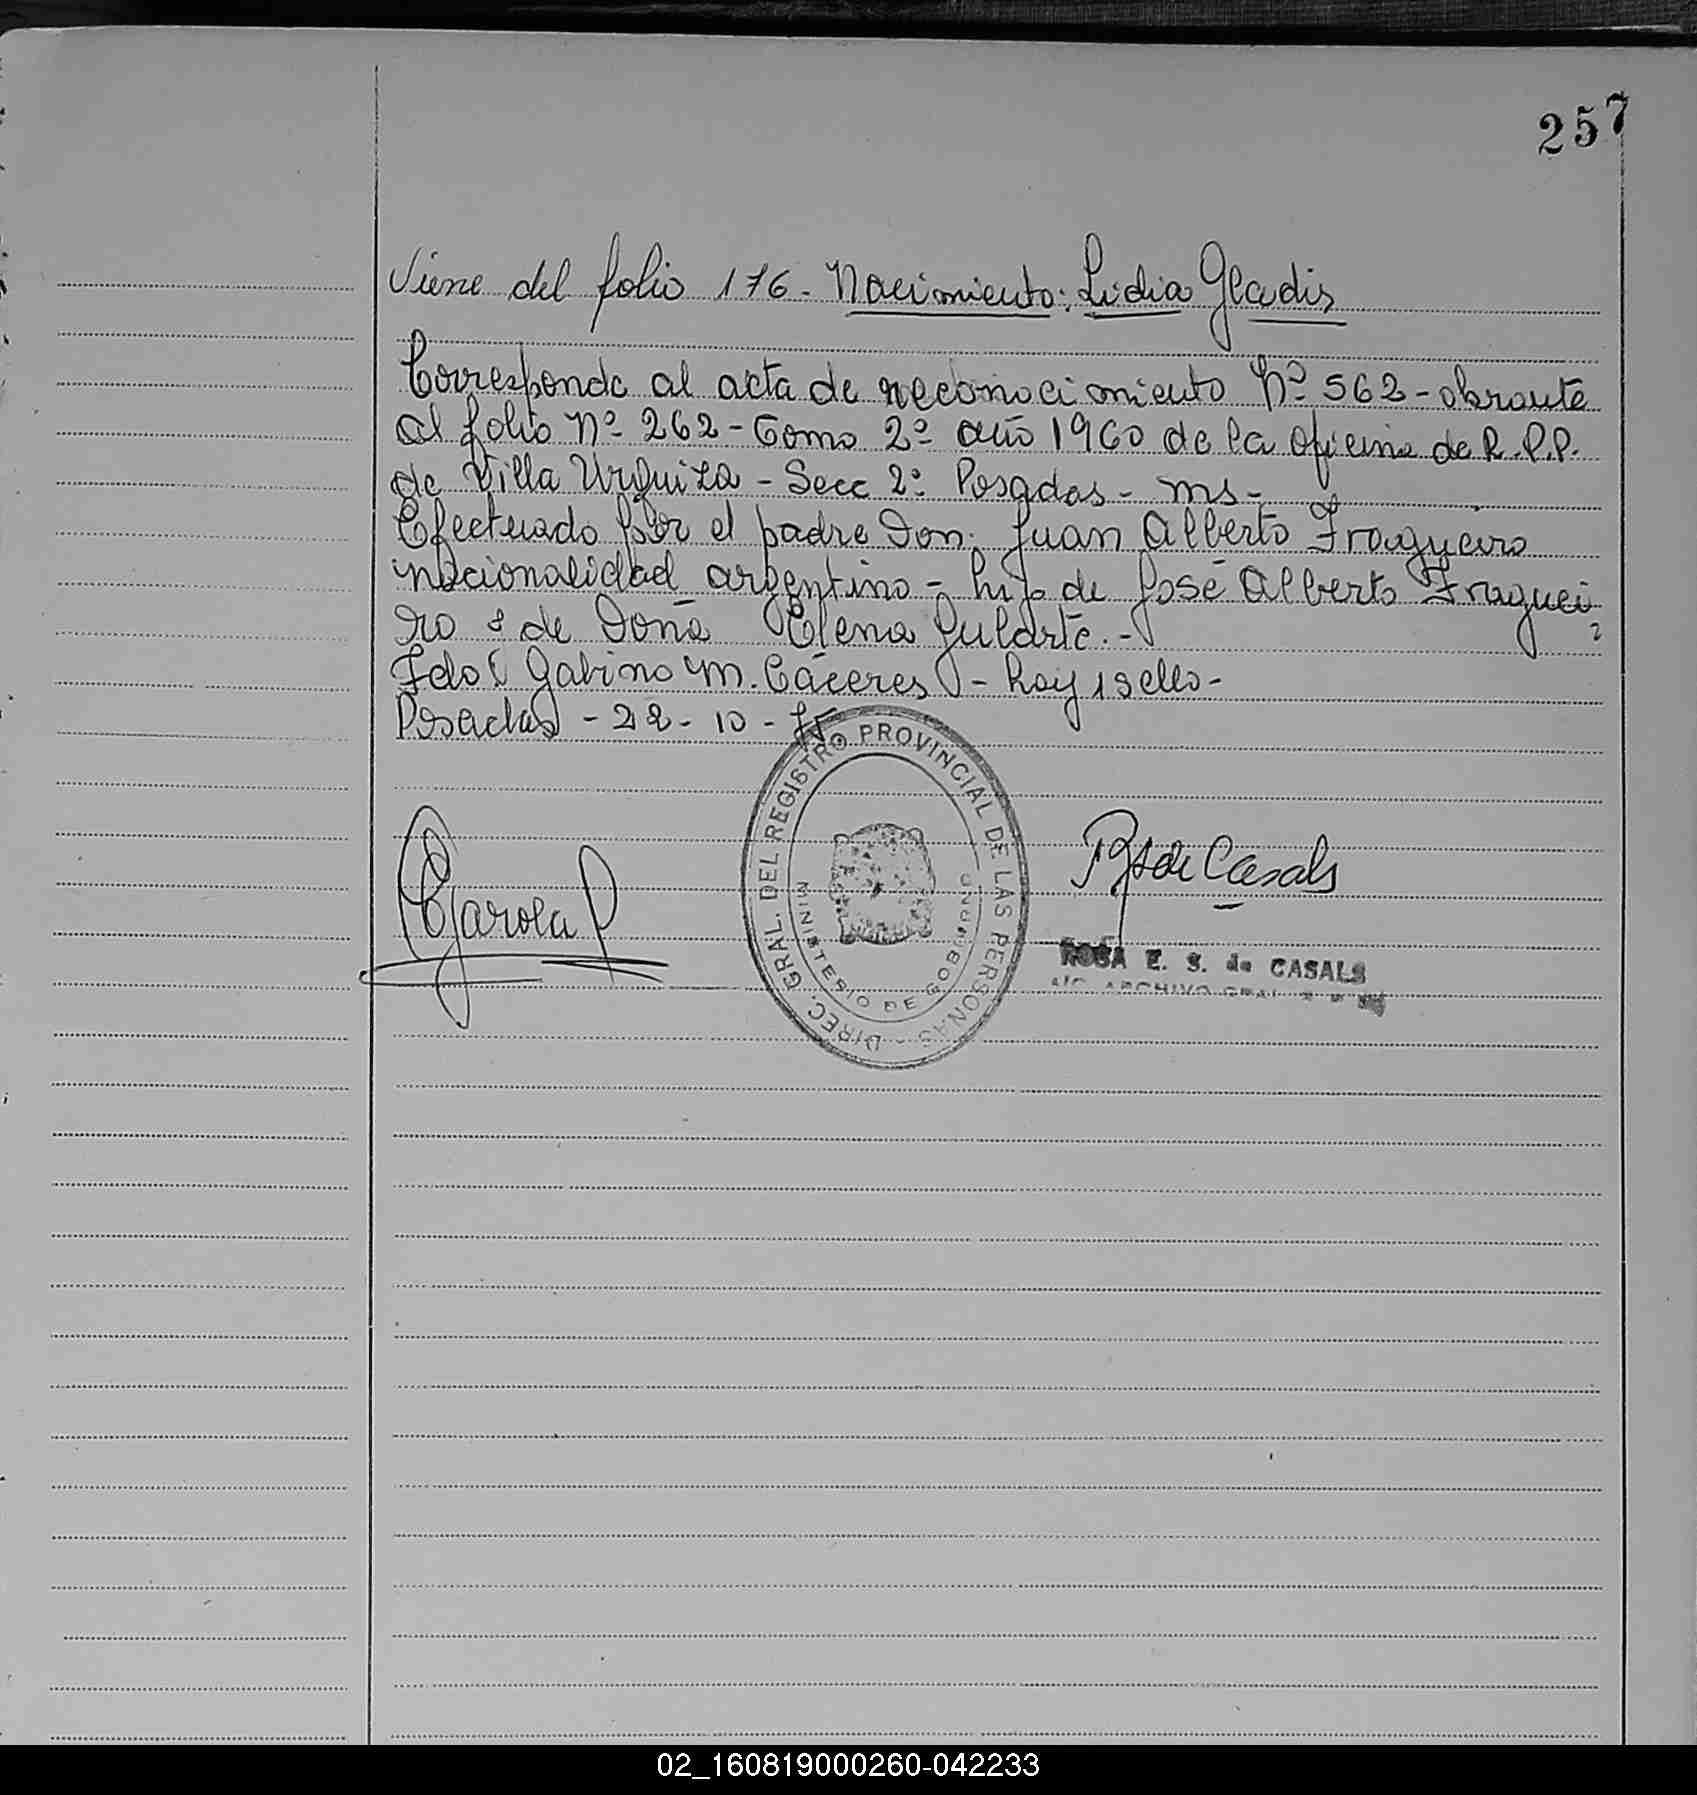 257
Viene del folio 176. Nacimiento: Lidia Gladis
Corresponde al acta de reconocimiento Nº 562 - obrante
al folio Nº 262 - Tomo 2º año 1960 de la Oficina de R.P.P.
de Villa Urquiza - Secc 2º Posadas - Ms -
Efectuado por el padre Don: Juan Alberto Fragueiro
nacionalidad argentino - hijo de José Alberto Fraguei
ro & de Doña Elena Gularte. -
Fdo: Gabino M. Cáceres - hay 1 sello -
Posadas - 22 - 10 - 75
DIREC. GRAL. DEL REGISTRO PROVINCIAL DE LAS PERSONAS -
MINISTERIO DE GOBIERNO
R S de Casals
ROSA E. S. de CASALS
A/C ARCHIVO GRAL
02_160819000260-042233